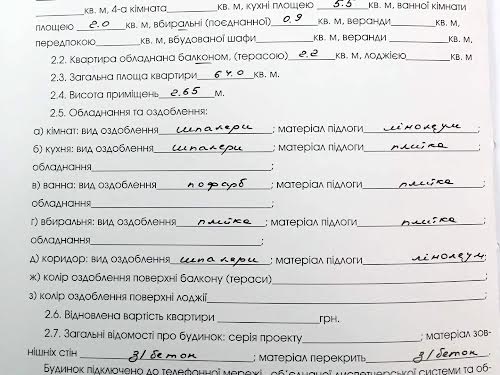 кв. м, 4-а кімната______кв. м, кухні площею 5.5 кв. м, ванної кімнати
площею 2.0 кв. м, вбиральні (поєднанної) 0,9 кв. м, веранди______кв. м,
передпокою______кв. м, вбудованої шафи______кв. м, веранди______кв. м,
2.2. Квартира обладнана балконом, (терасою) 2.2 кв. м, лоджією______кв. м
2.3. Загальна площа квартири 64.0 кв. м.
2.4. Висота приміщень 2.65 м.
2.5. Обладнання та оздоблення:
а) кімнат: вид оздоблення шпалери; матеріал підлоги лінолеум;
б) кухня: вид оздоблення шпалери; матеріал підлоги плитка
обладнання______;
в) ванна: вид оздоблення пофарб; матеріал підлоги плитка
обладнання______;
г) вбиральня: вид оздоблення плитка; матеріал підлоги плитка
обладнання______;
д) коридор: вид оздоблення шпалери; матеріал підлоги лінолеум;
ж) колір оздоблення поверхні балкону (тераси)______;
з) колір оздоблення поверхні лоджії______;
2.6. Відновлена вартість квартири______грн.
2.7. Загальні відомості про будинок: серія проекту______; матеріал зов-
нішніх стін з/бетон; матеріал перекрить з/бетон.
Будинок підключено до телефонної мережі, об'єднаної диспетчерської системи та об-